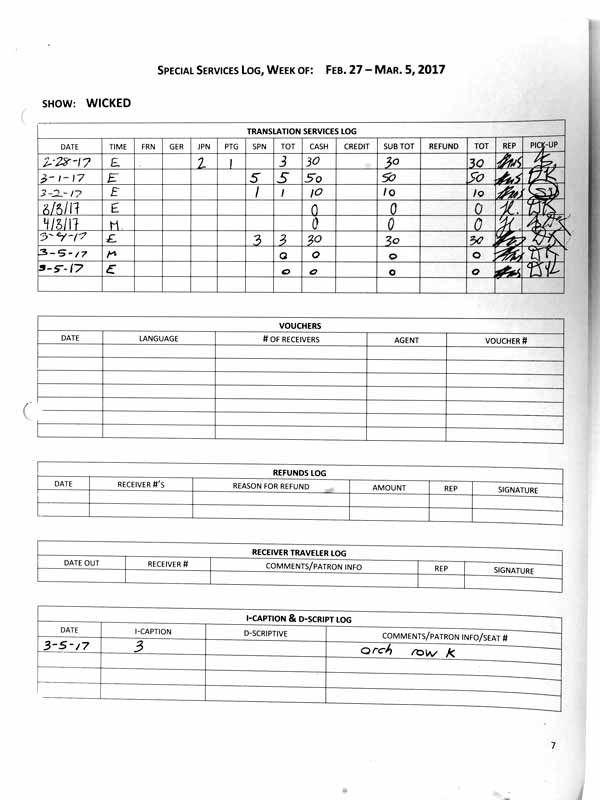 SPECIAL SERVICES LOG, WEEK OF: FEB. 27 – MAR. 5, 2017
SHOW: WICKED
TRANSLATION SERVICES LOG
DATE TIME FRN GER JPN PTG SPN TOT CASH CREDIT SUB TOT REFUND TOT REP PICK-UP
2-28-17 E 2 1 3 30 30 30
3-1-17 E 5 5 50 50 50 DK
3-2-17 E 1 1 10 10 10
8/3/17 E 0 0 0 DK
4/8/17 M 0 0 0 DK
3-4-17 E 3 3 30 30 30 DK
3-5-17 M 0 0 0 0 DK
3-5-17 E 0 0 0 0
VOUCHERS
DATE LANGUAGE # OF RECEIVERS AGENT VOUCHER #
REFUNDS LOG
DATE RECEIVER #'S REASON FOR REFUND AMOUNT REP SIGNATURE
RECEIVER TRAVELER LOG
DATE OUT RECEIVER # COMMENTS/PATRON INFO REP SIGNATURE
I-CAPTION & D-SCRIPT LOG
DATE I-CAPTION D-SCRIPTIVE COMMENTS/PATRON INFO/SEAT #
3-5-17 3 orch row K
7